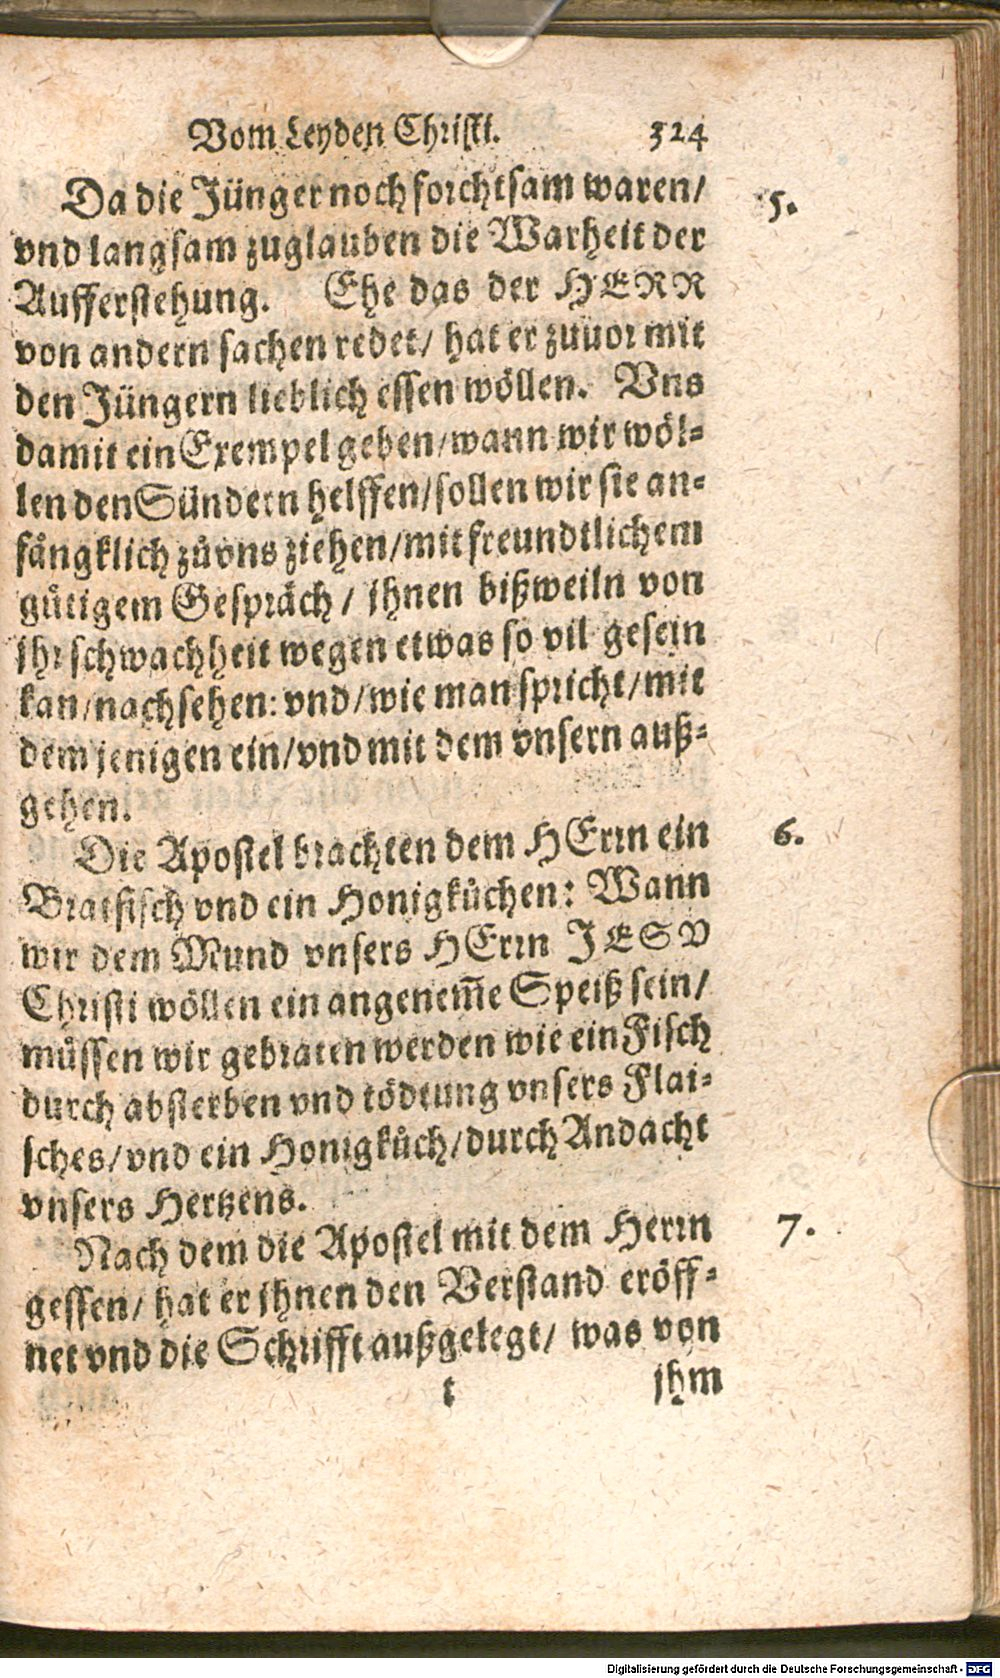 Vom Leyden Christi. 324
Da die Jünger noch forchtsam waren/ 5.
vnd langsam zuglauben die Warheit der
Aufferstehung. Ehe das der HERR
von andern sachen redet/ hat er zuuor mit
den Jüngern lieblich essen wöllen. Vns
damit ein Exempel geben/wann wir wöl-
len den Sündern helffen/sollen wir sie an-
fångklich zů vns ziehen/mit freundtlichem
gütigem Gespräch/ jhnen bißweiln von
jhr schwachheit wegen etwas so vil gesein
kan/nachsehen: vnd/wie man spricht/mit
dem jenigen ein/vnd mit dem vnsern auß-
gehen.
Die Apostel brachten dem HErrn ein 6.
Bratfisch vnd ein Honigkůchen: Wann
wir dem Mund vnsers HErrn JESV
Christi wöllen ein angenem̃e Speiß sein/
müssen wir gebraten werden wie ein Fisch
durch absterben vnd tödtung vnsers Flai-
sches/vnd ein Honigkůch/durch Andacht
vnsers Hertzens.
Nach dem die Apostel mit dem Herrn 7.
gessen/ hat er jhnen den Verstand eröff-
net vnd die Schrifft außgelegt/ was von
t jhm
Digitalisierung gefördert durch die Deutsche Forschungsgemeinschaft - DFG